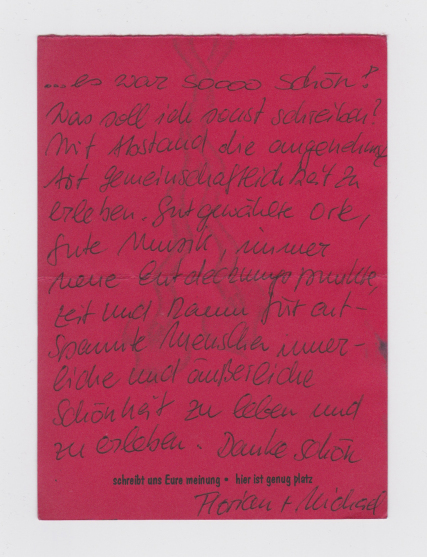 ...es war soooo schön!
Was soll ich sonst schreiben?
Mit Abstand die angenehmste
Art gemeinschaftlich Zeit zu
erleben. Gut gewählte Orte,
gute Musik, immer
neue Entdeckungspunkte,
Zeit und Raum für ent-
spannte Menschen inner-
liche und äußerliche
Schönheit zu leben und
zu erleben. Danke schön
schreibt uns Eure meinung • hier ist genug platz
Florian + Michael